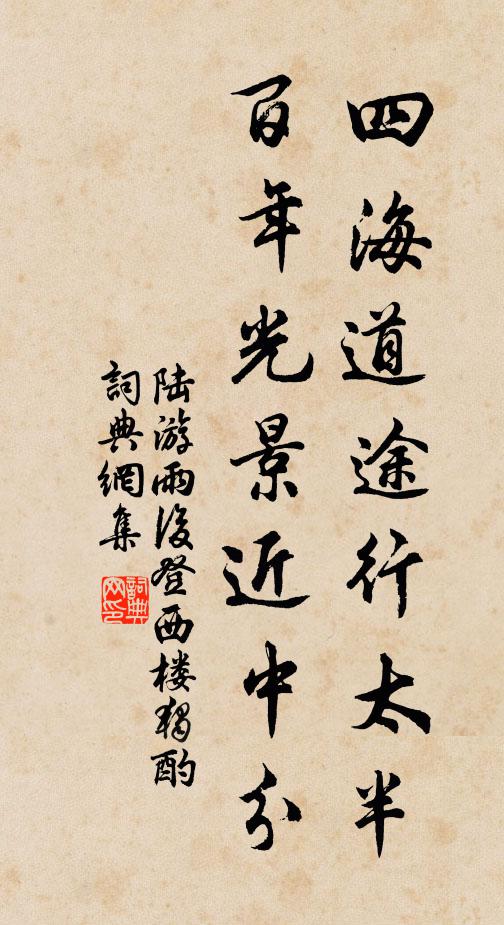 四海道途行太半
百年光景近中分
陆游雨後登西楼獨酌
詞典網集
詞典网印